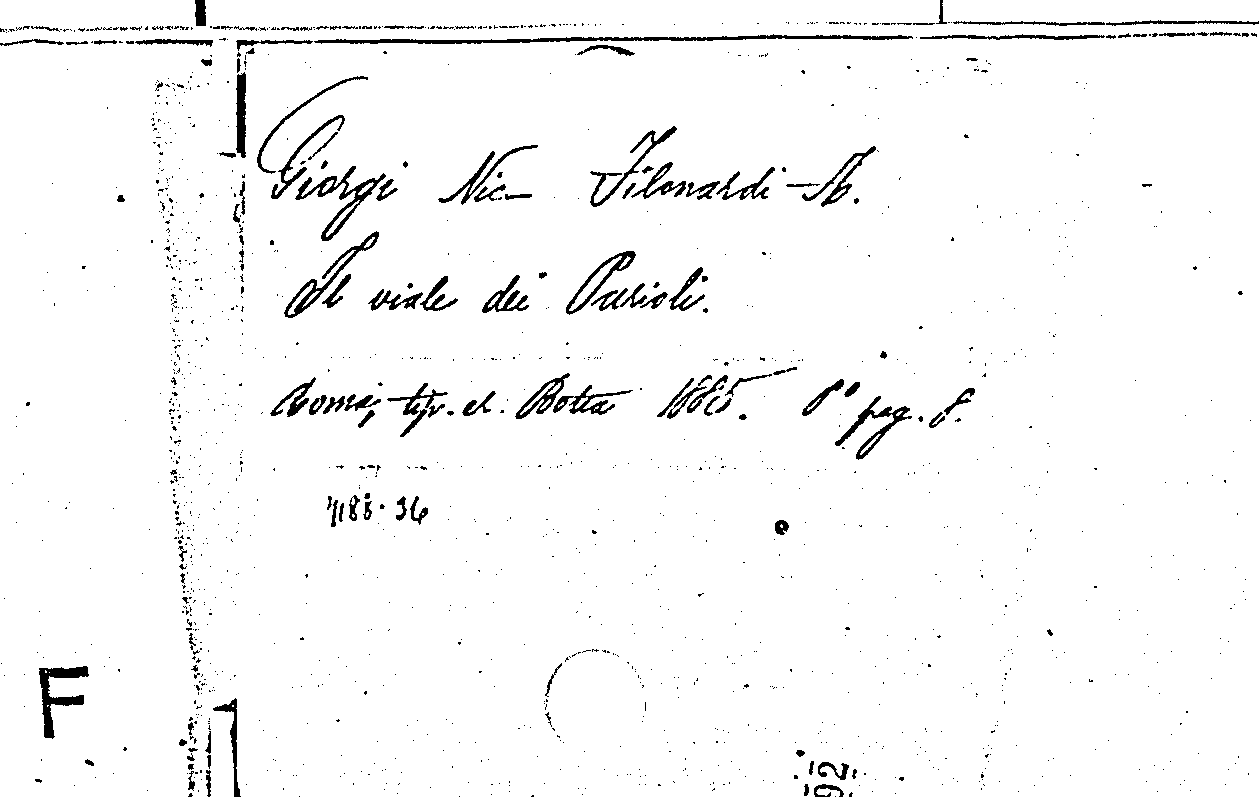 Giorgi Nic– Filonardi – A.
Il viale dei Parioli.
Roma, tip. el. Botta 1885. 8° pag. 8.
4188.36
F
92